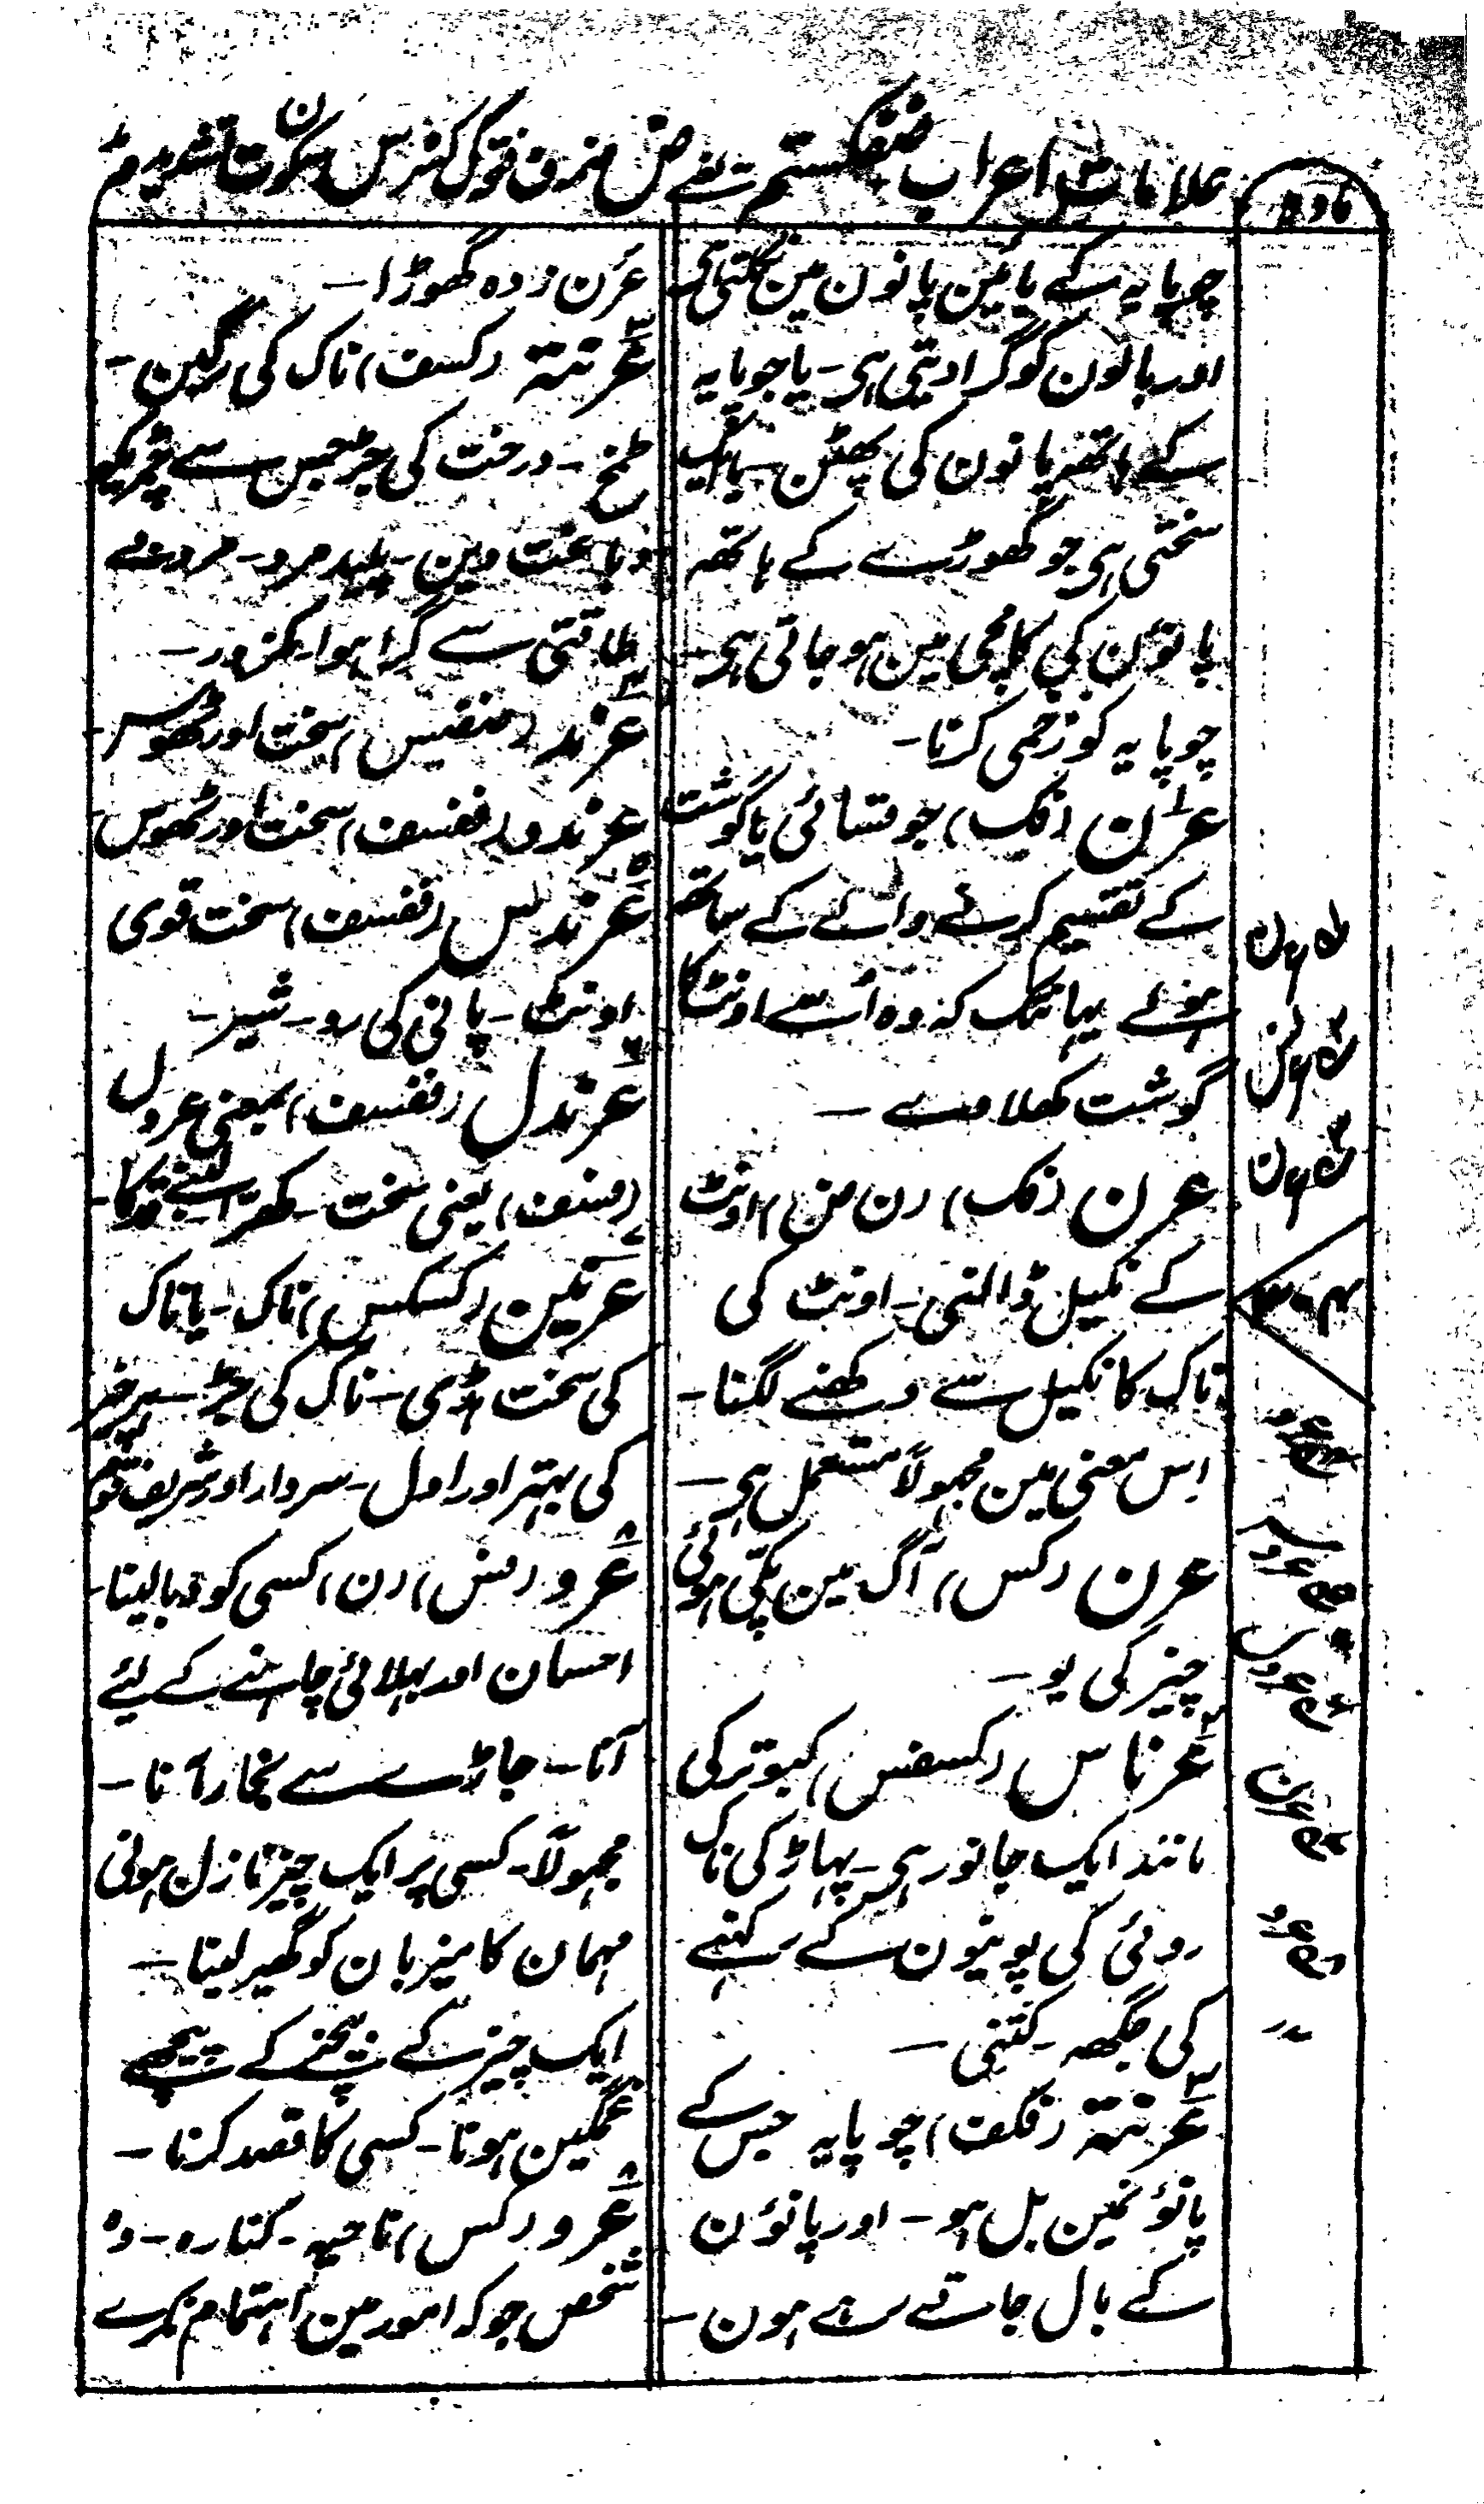 مادہ
علامات اعراب
چوپایہ کے پائین پانون مین نکلتی ہی
اور بالون کو گرا دیتی ہی۔ یا چوپایہ
کے ہاتھ پانون کی پھٹن۔ یا ایک
سختی ہی جو گھوڑے کے ہاتھہ
پانون کی مین ہو جاتی ہی۔
چوپایہ کو زخمی کرنا۔
عرن (فک) جو قسائی یا گوشت
کے تقسیم کرنے والے کے ساتھہ
ہولے یہانتک کہ وہ اُسے اونٹ کا
گوشت کھلاوے۔
عرن (فک) (ن ض) اونٹ
کے نکیل ڈالنی۔ اونٹ کی
ناک کا نکیل سے دکھنے لگنا۔
اِس معنی مین مجہولاً مستعمل ہی۔
عرن (کس) آگ مین پکی ہوئی
چیز کی بو۔
عرناس (کسفس) کبوتر کی
مانند ایک جانور ہی۔ پہاڑ کی ناک
روئی کی پونیون کے رکھنے
کی جگھہ۔ کتنی۔
عرنتہ (فکف) چوپایہ جس کے
پانؤ نمین بل ہو۔ اور پانؤن
کے بال جاتے رہے ہون۔
عرن زدہ گھوڑا۔
عرنتہ (کسف) ناک کی رگین۔
طمخ۔ درخت کی جڑ جس سے چمڑیکو
دباغت دین۔ پلید مرد۔ مرد بے
طاقتی سے گرا ہوا۔ کمزور۔
عرند (منفس) سخت اور ٹھوس۔
عرندد (ففسف) سخت اور ٹھوس
عرندس (ففسف) سخت قوی
اونٹ۔ پانی کی رو۔ شیر۔
عرندل (ففسف) بمعنی عردل
(منف) یعنی سخت۔ کھرا۔ لنبے قد کا۔
عرنین (کسکس) ناک۔ یا ناک
کی سخت ہڈی۔ ناک کی جڑ۔ ہر چیز
کی بہتر اور اول۔ سردار اور شریف قوم
عرو (فس) (ن) کسی کو دبا لینا۔
احسان اور بھلائی چاہنے کے لئے
آنا۔ جاڑے سے بخار آنا۔
مجہولاً۔ کسی پر ایک چیز نازل ہونی
مہمان کا میزبان کو گھیر لینا۔
ایک چیز کے بیچنے کے پیچھے
غمگین ہونا۔ کسی کا قصد کرنا۔
عرو (کس) ناحیہ۔ کنارہ۔ وہ
شخص جو کہ امور مین اہتمام نکرے